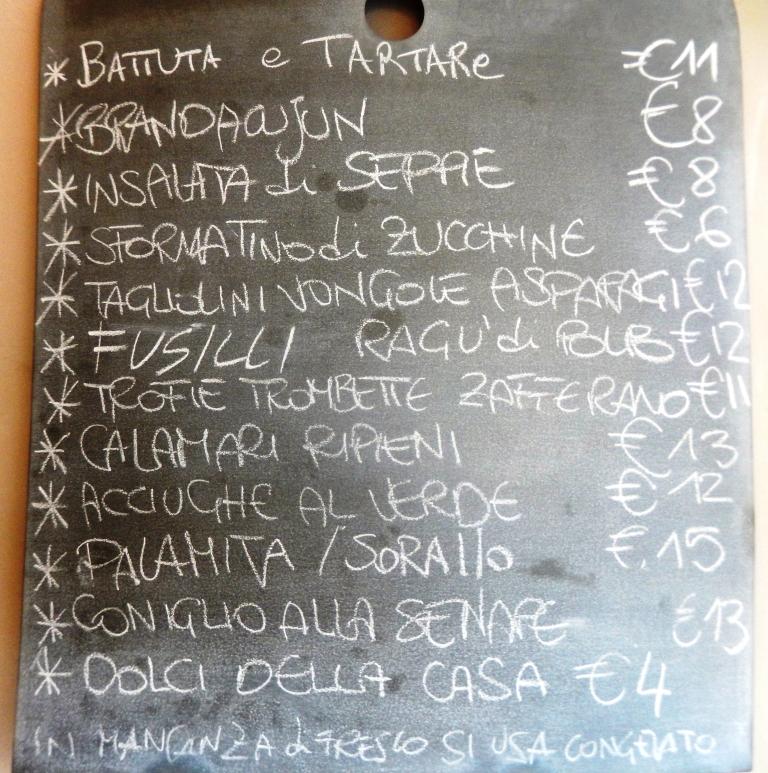 * BATTUTA e TARTARE €11
* BRANDACUJUN €8
* INSALATA di SEPPIE €8
* SFORMATINO di ZUCCHINE €6
* TAGLIOLINI VONGOLE ASPARAGI €12
* FUSILLI RAGU' di POLPO €12
* TROFIE TROMBETTE ZAFFERANO €11
* CALAMARI RIPIENI €13
* ACCIUGHE AL VERDE €12
* PALAMITA / €.15
* CONIGLIO ALLA SENAPE €13
* DOLCI DELLA CASA €4
IN MANCANZA di FRESCO SI USA CONGELATO